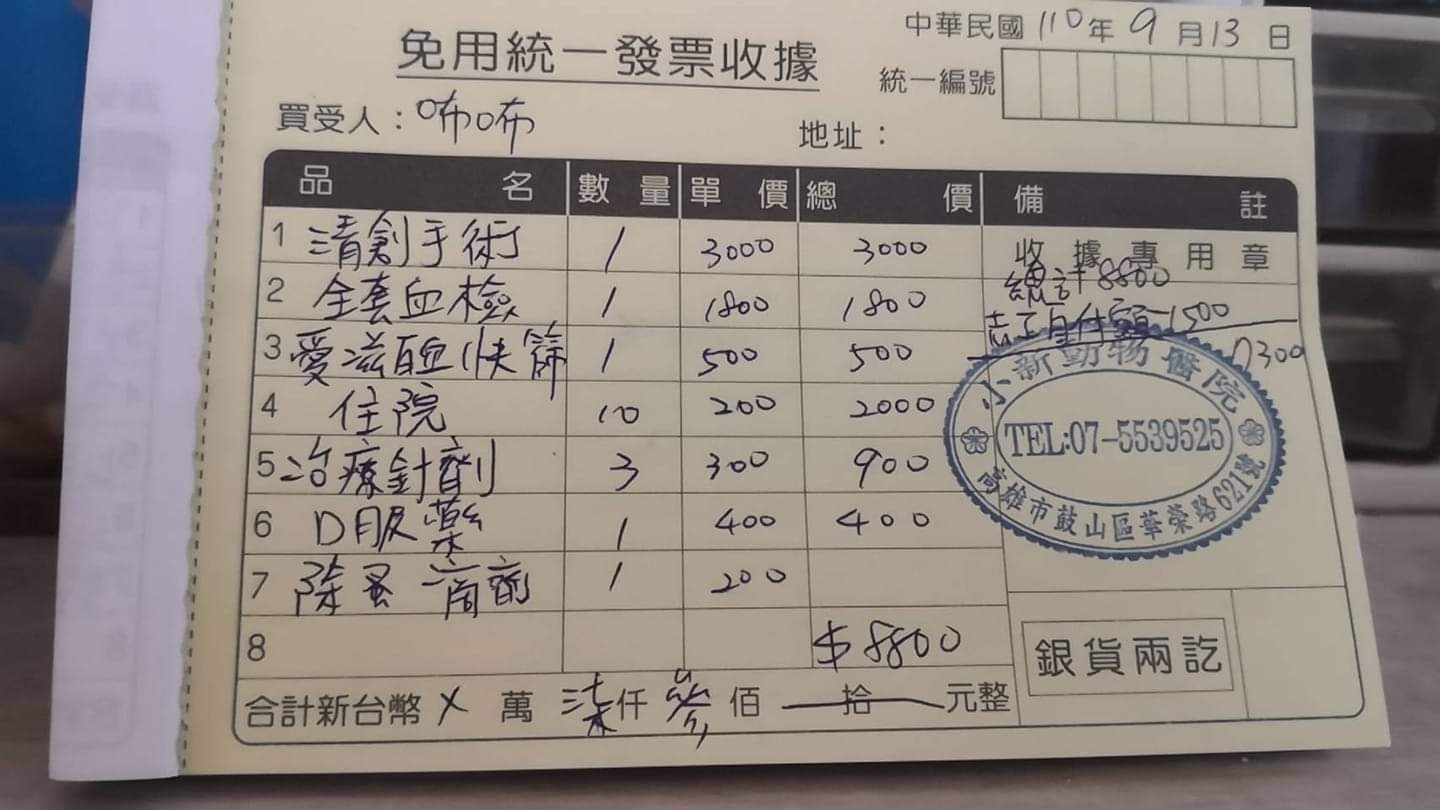 中華民國110年9月13日
免用統一發票收據
統一編號
買受人：咘咘
地址：
品名 數量 單價 總價 備註
1 清創手術 1 3000 3000
收據專用章
總計8800
2 全套血檢 1 1800 1800
志工自付額-1500
7300
3 愛滋白血快篩 1 500 500
4 住院 10 200 2000
5 治療針劑 3 300 900
6 口服藥 1 400 400
7 除蚤滴劑 1 200
小新動物醫院
TEL:07-5539525
高雄市鼓山區華榮路621號
8 $8800
銀貨兩訖
合計新台幣 X 萬 柒仟 參佰 拾 元整